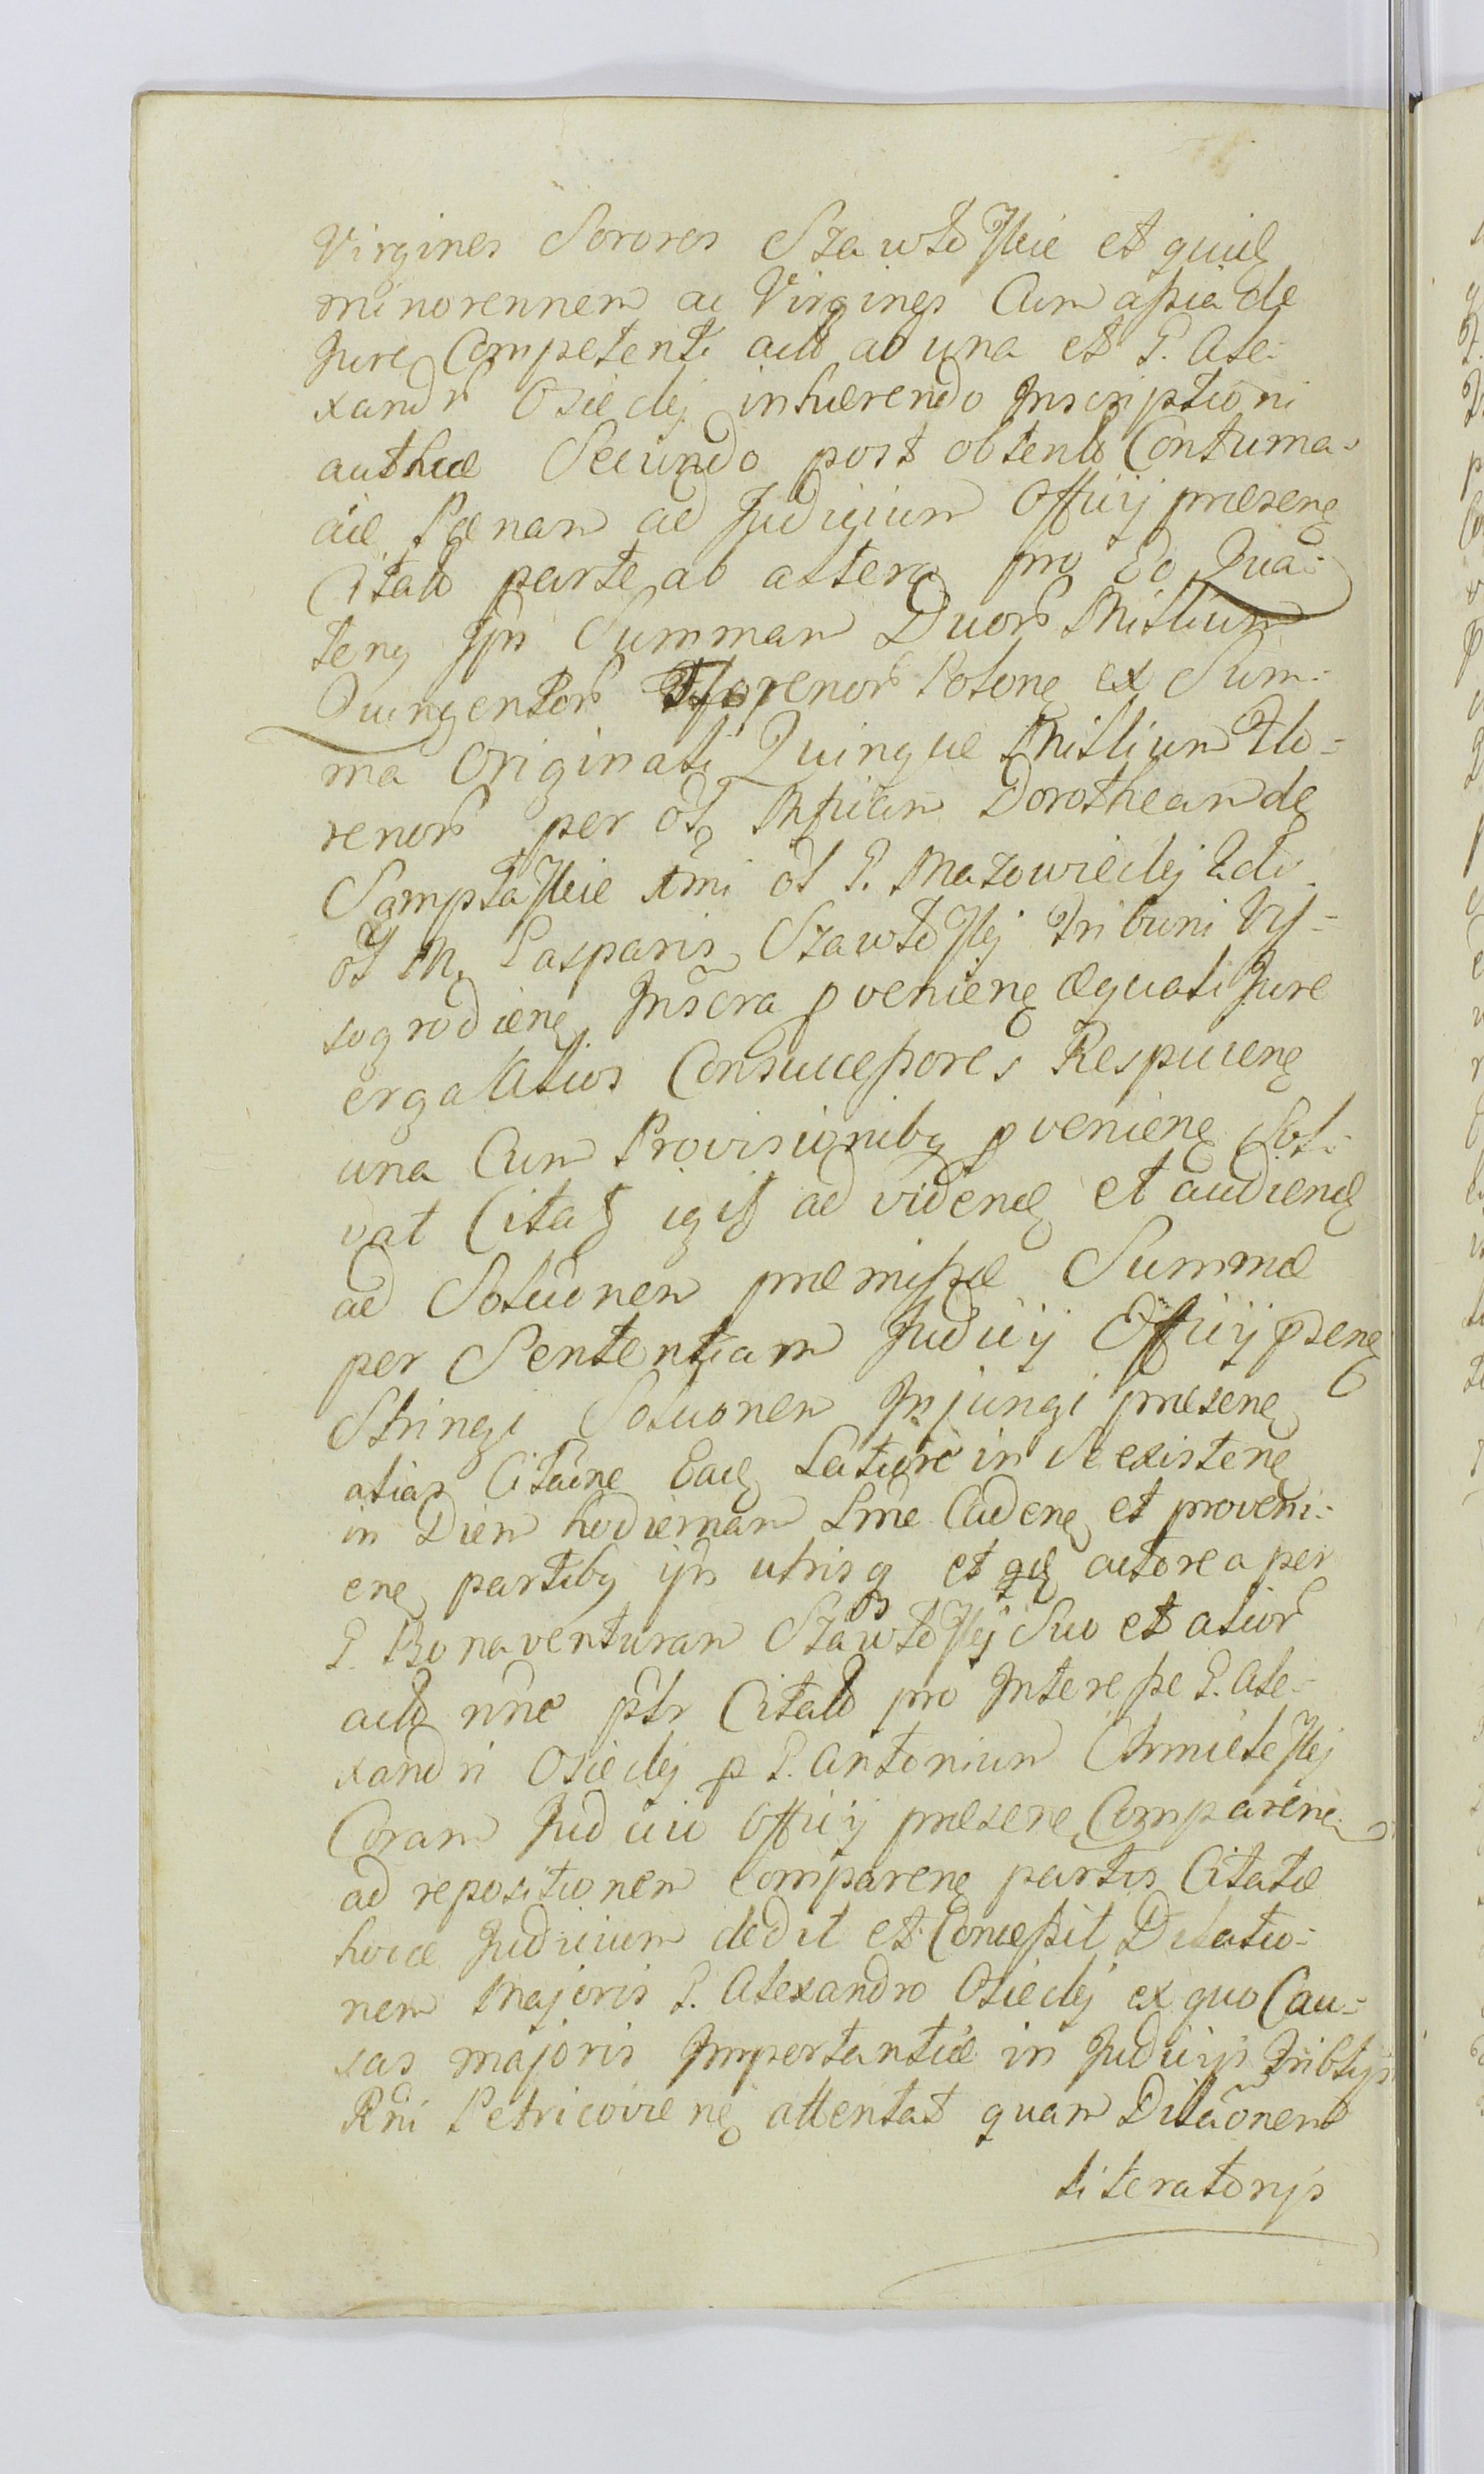 Virgines Sorores Szawłoskie et quid
minorennem ac Virgines Cum assia de
Jure Competenti actt ab una et G. Ale-
xandr Osiecky inhærendo Inscriptioni
authcæ Secundo post obtent Contuma-
ciæ Pœnam ad Judicium Officij præsen
Citatt parte ab altera pro Eo Qua-
teng Jpn Summam Duor Millium
Quingentor Florenor Polon ex Sum-
ma Originali Quinque Millium Flo-
renor per ol Mficam Dorotheam de
Sampłaskie 1mi ol G. Mazowiecky 2di
ol M. Casparis Szawłosky Tribuni Vy-
sogrodien Inscra pvenien æquali Jure
erga Alios Consuccessores Respicien
una Cum Provisionibg pvenien Sol-
vat Citat igit ad videnđ et audienđ
ad Soluonem præmissæ Summæ
per Sententiam Judicij Officij psen
Stringi Soluonem Injungi præsen
alias Citaõne Eađ Latiore in Se existen
in Diem hodiernam Lme Caden et proveni-
en partibg ipn utrisq et qđ actorea per
G. Bonaventuram Szawłosky Suo et alior
actt nno ptr Citatt pro Interesse G. Ale-
xandri Osiecky p G. Antonium Chmielesky
Coram Judicio Officij præsen Comparen
ad repositionem Comparen partis Citatæ
hocce Judicium dedit et Concessit Dilatio-
nem Majoris G. Alexandro Osiecky ex quo Cau-
sas majoris Importantiæ in Judicijs Triblijs
Rni Petricovien attentat quam Dilaõnem
literatorijs